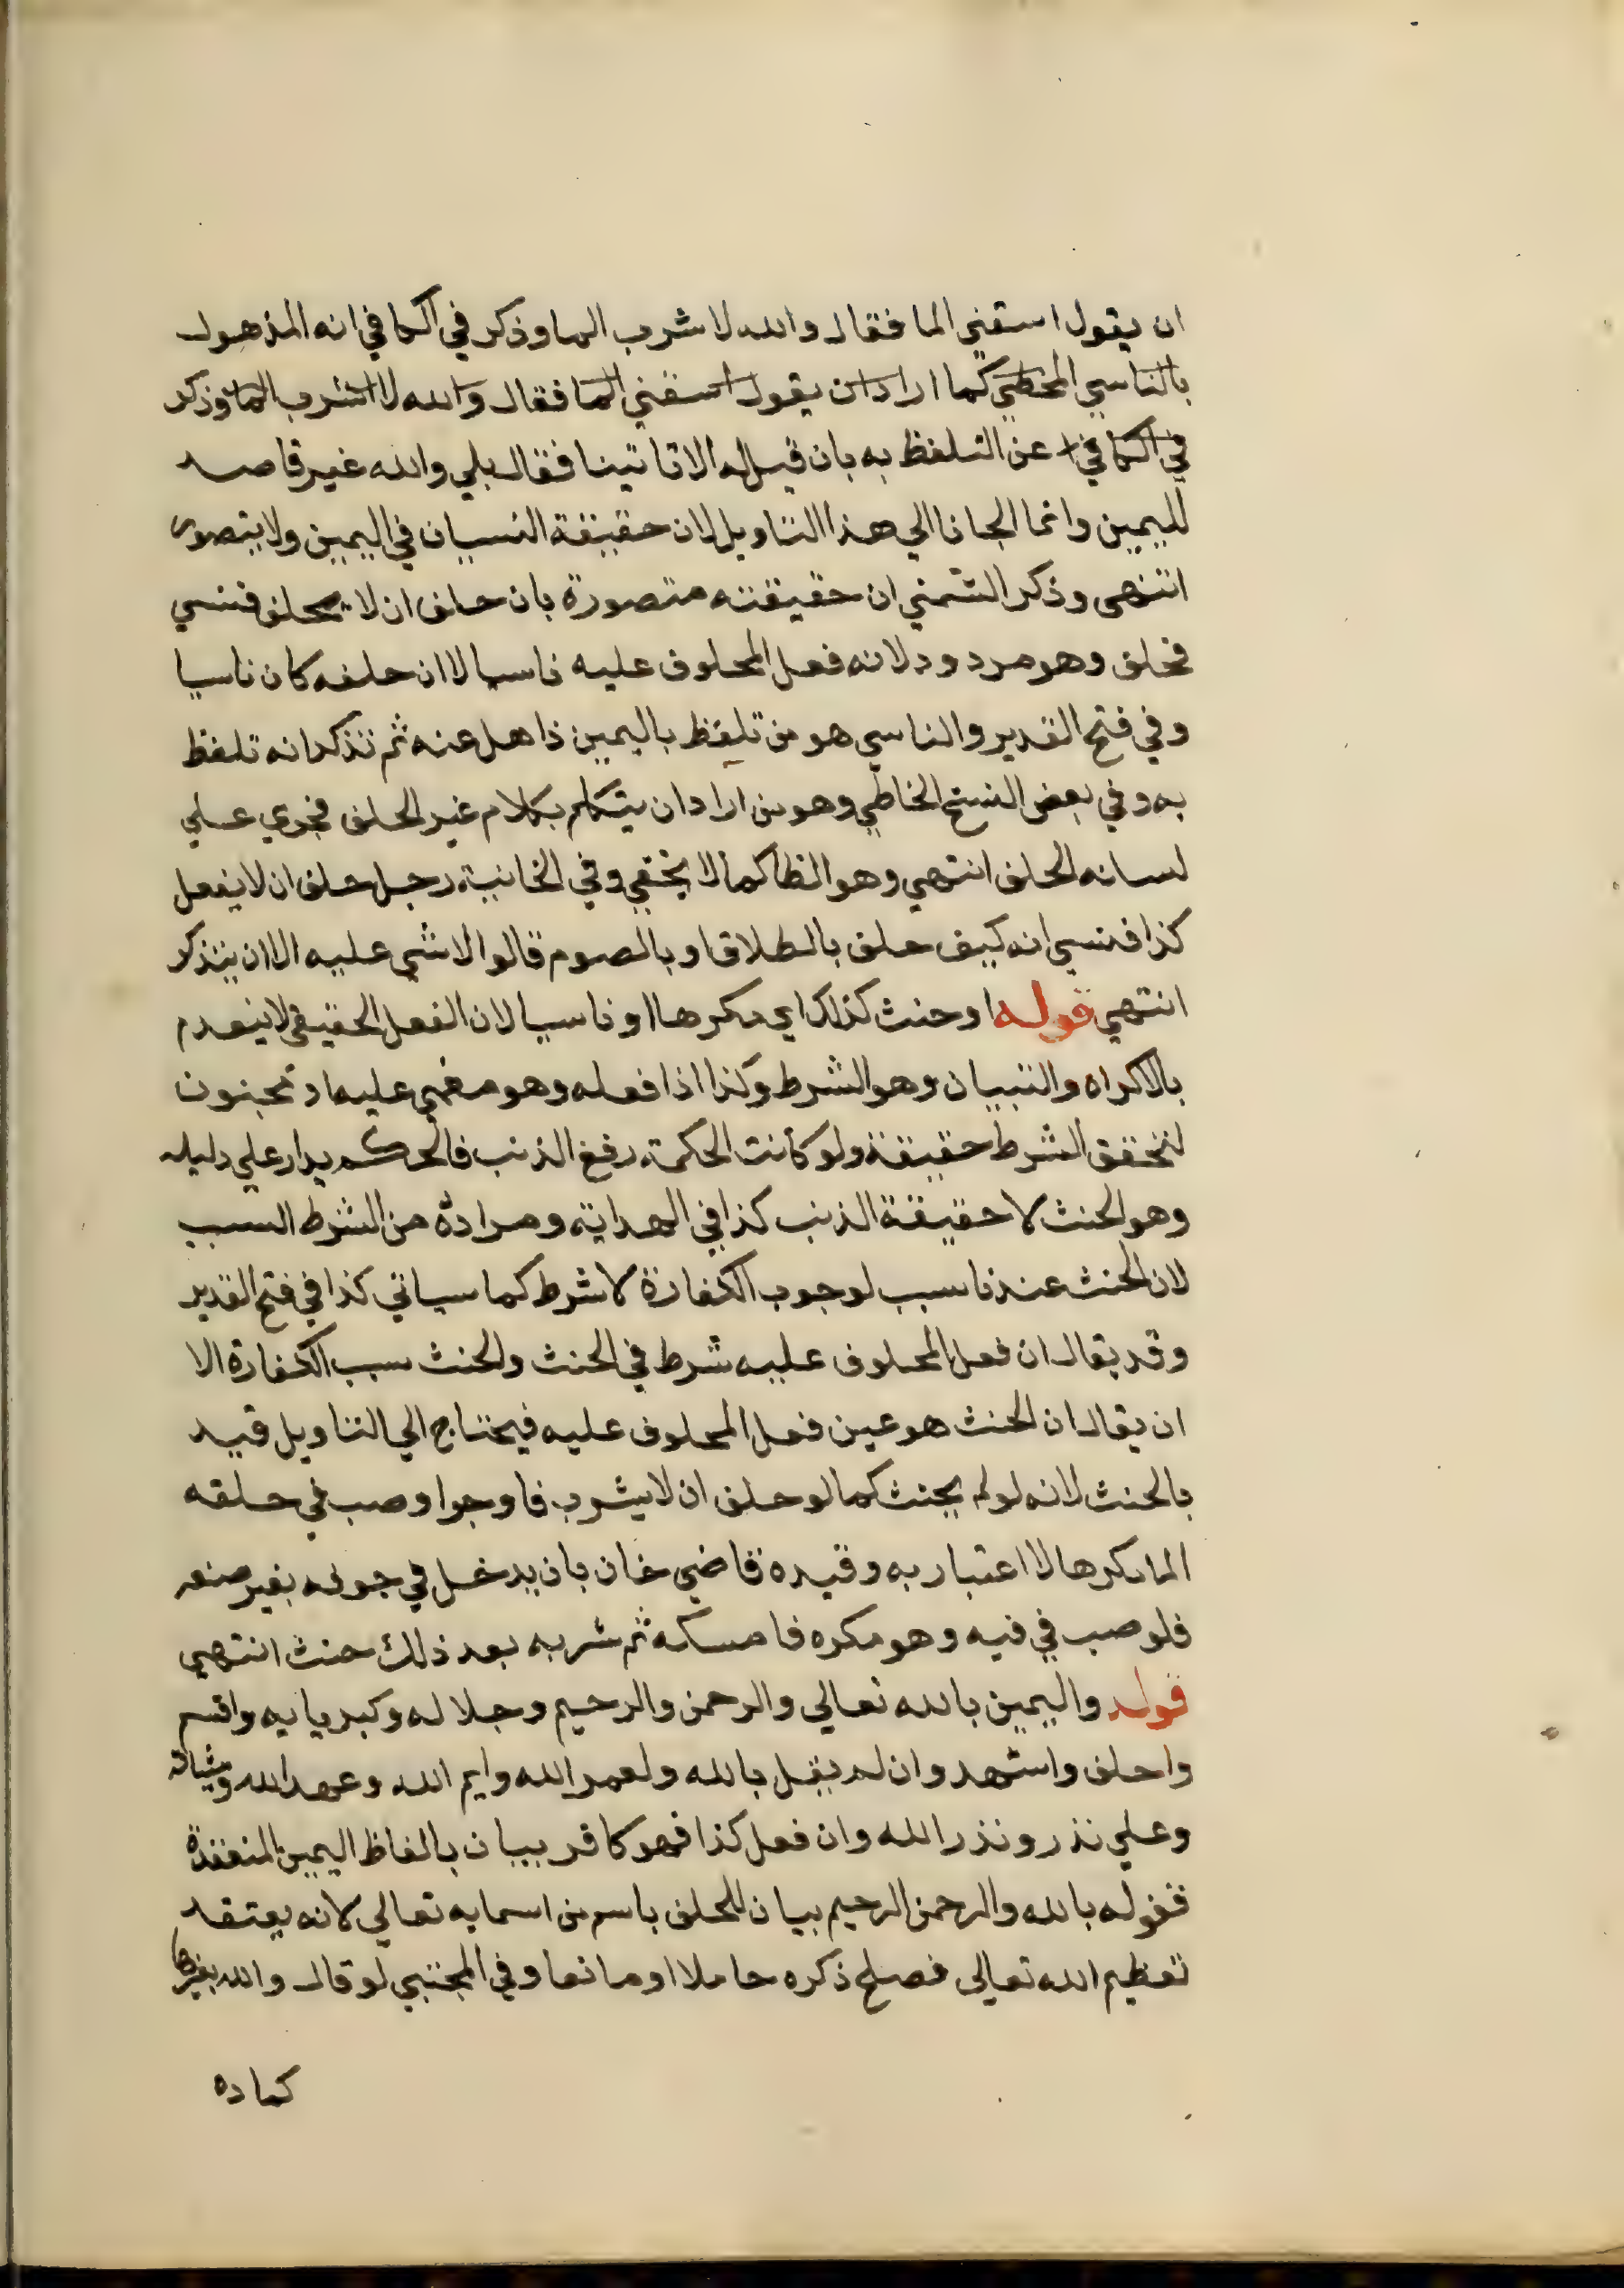 ان يقول اسقني الما فقال والله لا شرب الما وذكر في الكافي انه المذهول
بالناسي المخطي كما اراد ان يقول اسقني الما فقال والله لا اشرب الما وذكر
في الكافي عن التلفظ به بان قيل له الا تاتينا فقال بلي والله غير قاصد
لليمين وانما الجانا الي هذا التاويل لان حقيقة النسيان في اليمين ولا يتصور
انتهي وذكر الشمني ان حقيقته متصورة بان حلف ان لا يحلف فنسي
فحلف وهو مردود لانه فعل المحلوف عليه ناسيا لا ان حلفه كان ناسيا
وفي فتح القدير والناسي هو من تلفظ باليمين ذاهل عنه ثم تذكر انه تلفظ
به وفي بعض النسخ الخاطي وهو من اراد ان يتكلم بكلام غير الحلف فجري علي
لسانه الحلف انتهي وهو الظا كما لا يخفي وفي الخانية رجل حلف ان لا يفعل
كذا فنسي انه كيف حلف بالطلاق او بالصوم قالوا لا شي عليه الا ان يتذكر
انتهي قوله او حنث كذلك اي مكرها او ناسيا لان الفعل الحقيقي لا ينعدم
بالاكراه والنسيان وهو الشرط وكذا اذا فعله وهو مغمي عليه او مجنون
لتحقق الشرط حقيقة ولو كانت الحكمة رفع الذنب فالحكم يدار علي دليله
وهو الحنث لا حقيقة الذنب كذا في الهداية ومراده من الشرط السبب
لان الحنث عندنا سبب لوجوب الكفارة لا شرط كما سياتي كذا في فتح القدير
وقد يقال ان فعل المحلوف عليه شرط في الحنث والحنث سبب الكفارة الا
ان يقال ان الحنث هو عين فعل المحلوف عليه فيحتاج الي التاويل قيد
بالحنث لانه لو لم يحنث كما لو حلف ان لا يشرب فاوجر او صب في حلقه
الما مكرها لا اعتبار به وقيده قاضي خان بان يدخل في جوفه بغير صنعه
فلو صب في فيه وهو مكره فامسكه ثم شربه بعد ذلك حنث انتهي
قوله واليمين بالله تعالي والرحمن والرحيم وجلاله وكبريايه واقسم
واحلف واشهد وان لم يقل بالله ولعمر الله وايم الله وعهد الله وميثاقه
وعلي نذر ونذر الله وان فعل كذا فهو كافر بيان بالفاظ اليمين المنعقدة
فقوله بالله والرحمن الرحيم بيان للحلف باسم من اسمايه تعالي لانه يعتقد
تعظيم الله تعالي فصلح ذكره حاملا او مانعا وفي المجتبي لو قال والله بغيرها
كما ده